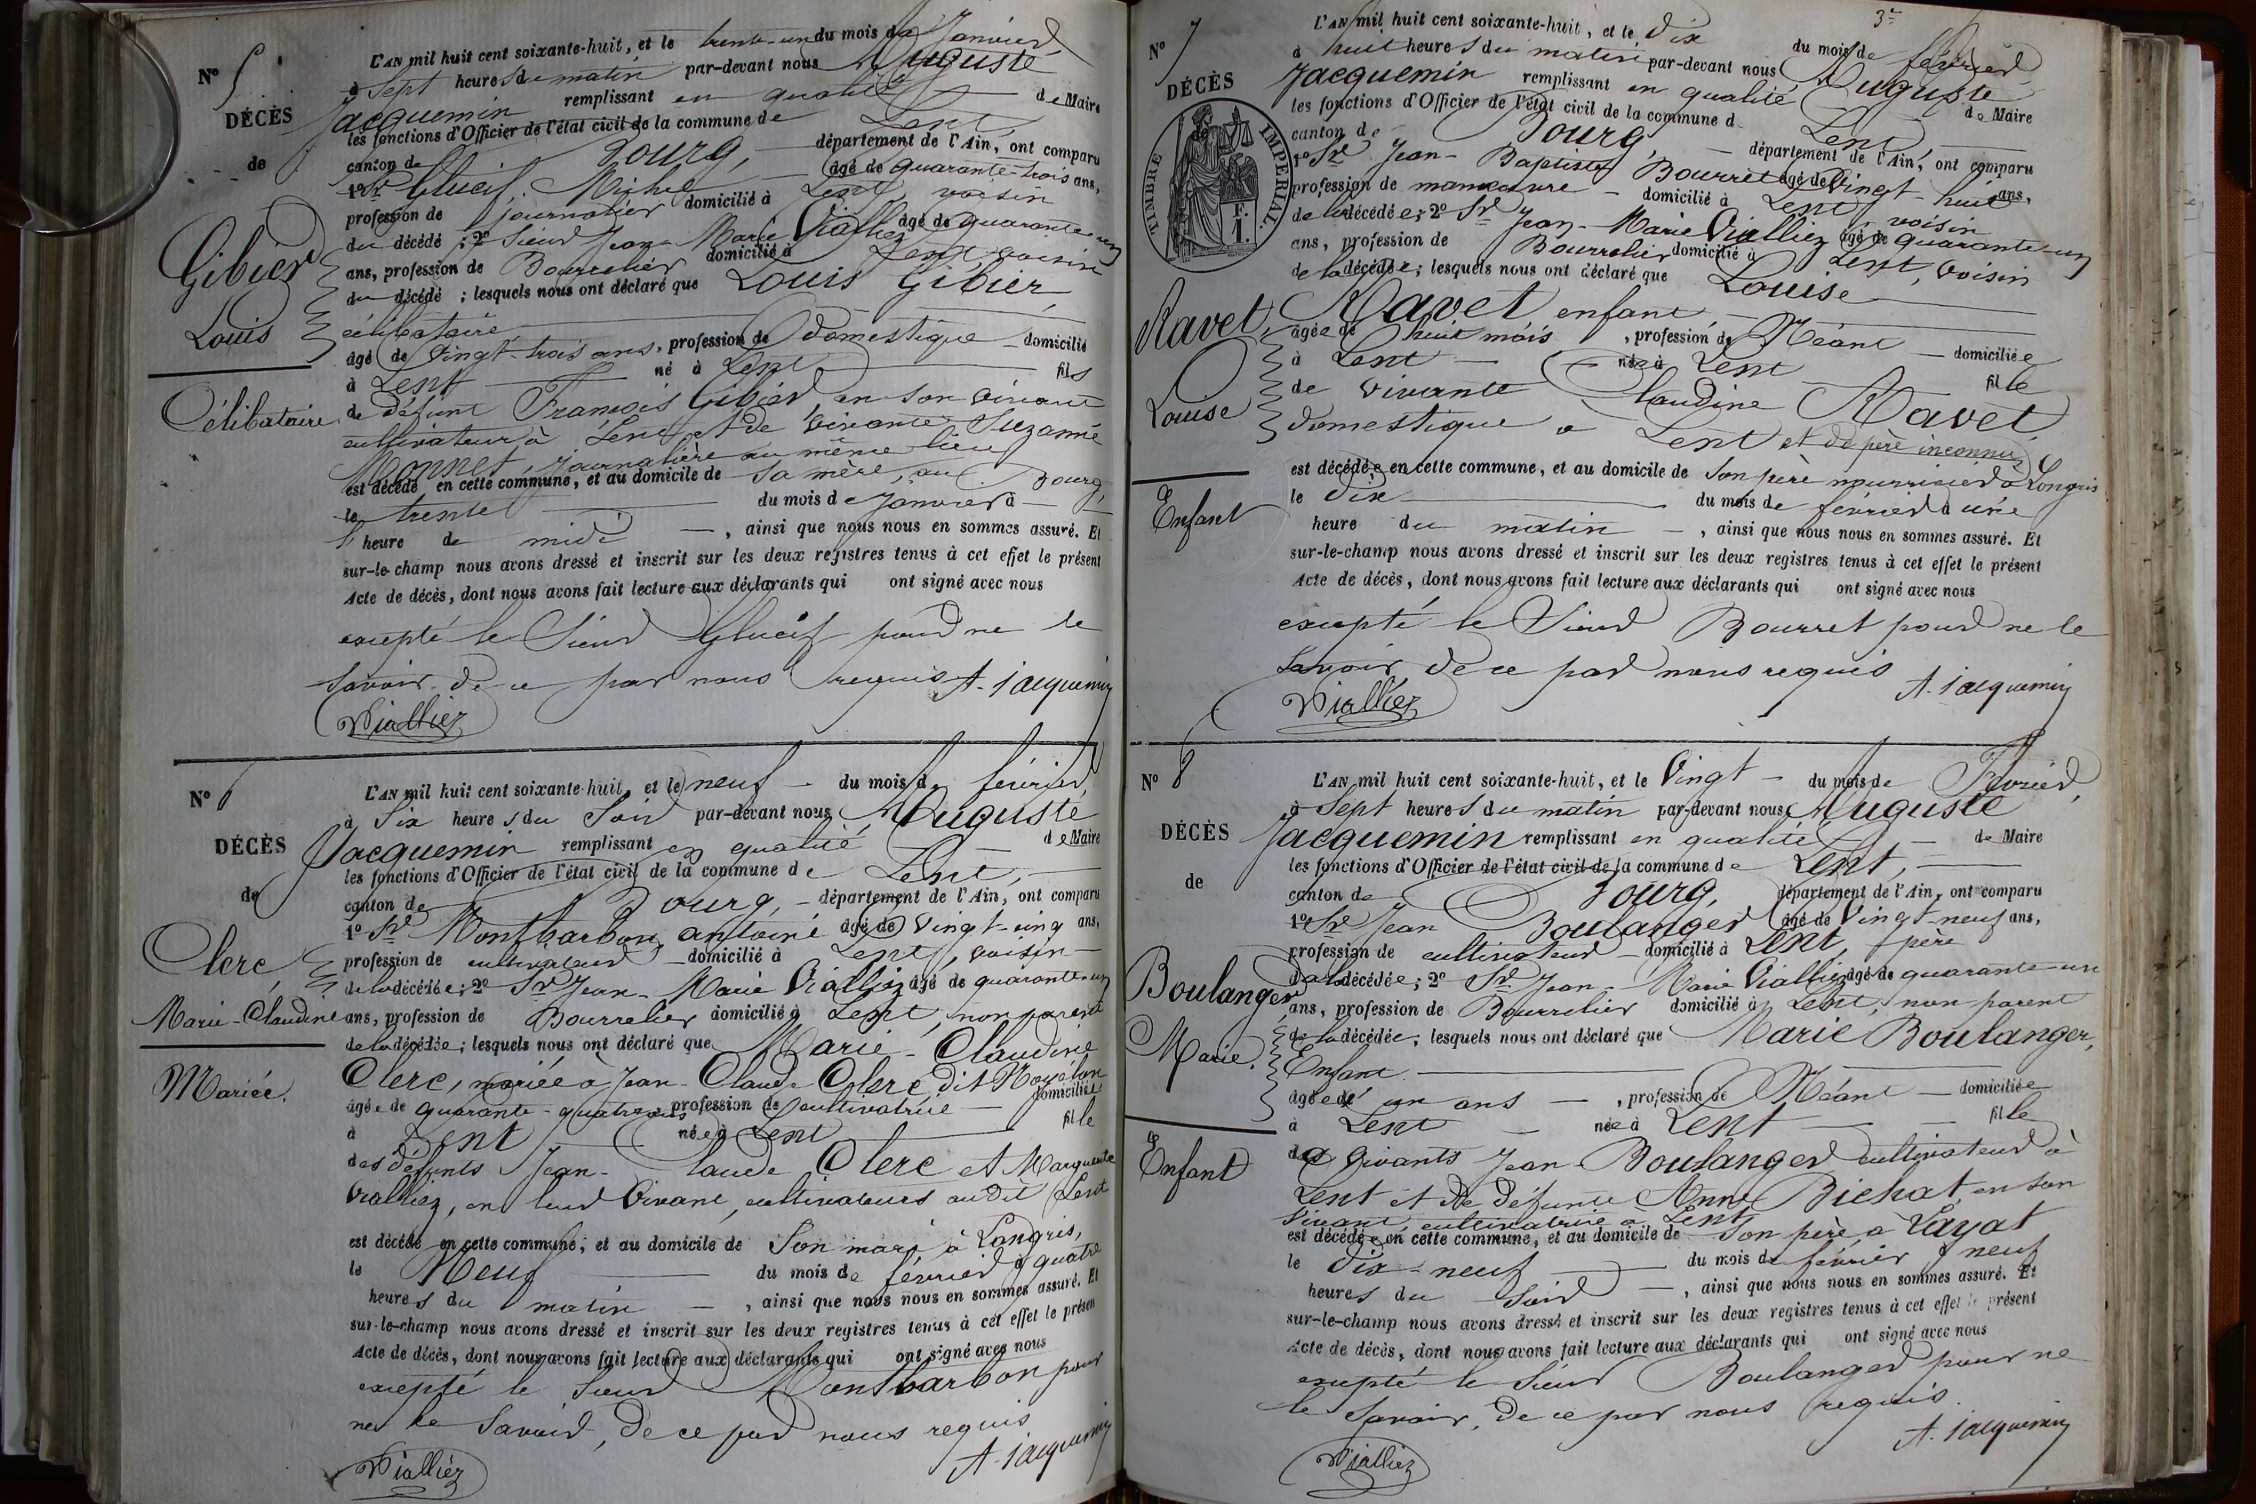 N° 5
DÉCÈS
de
Gibier
Louis
Célibataire
L'AN mil huit cent soixante-huit, et le trente-un du mois de Janvier,
à Sept heures du matin par-devant nous Auguste
Jacquemin remplissant en qualité de Maire
les fonctions d'Officier de l'état civil de la commune de Lent,
canton de Bourg, département de l'Ain, ont comparu
1° Sr Michel âgé de quarante-trois ans,
profession de journalier domicilié à Lent, voisin
du décédé ; 2° Sieur Jean-Marie Vialliez âgé de quarante-un
ans, profession de Bourrelier domicilié à Lent, voisin
du décédé ; lesquels nous ont déclaré que Louis Gibier,
célibataire
âgé de Vingt-trois ans, profession de domestique domicilié
à Lent né à Lent fils
de défunt François Gibier en son vivant
cultivateur à Lent et de vivante Suzanne
Monnet, journalière au même lieu
est décédé en cette commune, et au domicile de sa mère, au Bourg,
le trente du mois de Janvier à
l' heure de midi , ainsi que nous nous en sommes assuré. Et
sur-le-champ nous avons dressé et inscrit sur les deux registres tenus à cet effet le présent
Acte de décès, dont nous avons fait lecture aux déclarants qui ont signé avec nous
excepté le Sieur pour ne le
savoir de ce par nous requis A. Jacquemin
Vialliez
N° 6
DÉCÈS
de
Clerc,
Marie-Claudine
Mariée.
L'AN mil huit cent soixante-huit, et le neuf du mois de février,
à Six heures du Soir par-devant nous Auguste
Jacquemin remplissant en qualité de Maire
les fonctions d'Officier de l'état civil de la commune de Lent,
canton de Bourg, département de l'Ain, ont comparu
1° Sr Montbarbon antoine âgé de Vingt-cinq ans,
profession de cultivateur domicilié à Lent, voisin
de la décédée ; 2° Sr Jean-Marie Vialliez âgé de quarante-un
ans, profession de Bourrelier domicilié à Lent, non parent
de la décédée ; lesquels nous ont déclaré que Marie-Claudine
Clerc, mariée à Jean-Claude Clerc, dit Noyélon
âgée de quarante-quatre ans profession de cultivatrice domiciliée
à Lent née à Lent fille
des défunts Jean-Claude Clerc et Marguerite
Vialliez, en leur Vivant, cultivateurs audit Lent
est décédée en cette commune, et au domicile de Son mari à Longris,
le Neuf du mois de février à quatre
heures du matin , ainsi que nous nous en sommes assuré. Et
sur-le-champ nous avons dressé et inscrit sur les deux registres tenus à cet effet le présent
Acte de décès, dont nous avons fait lecture aux déclarants qui ont signé avec nous
excepté le Sieur Montbarbon pour
ne le Savoir, de ce par nous requis
A. Jacquemin
Vialliez
3e
N° 7
DÉCÈS
TIMBRE IMPERIAL.
F.
1.
Ravet,
Louise
Enfant
L'AN mil huit cent soixante-huit, et le Dix du mois de février,
à huit heures du matin par-devant nous Auguste
Jacquemin remplissant en qualité de Maire
les fonctions d'Officier de l'état civil de la commune d Lent,
canton de Bourg, département de l'Ain, ont comparu
1° Sr Jean-Baptiste Bourret âgé de Vingt-huit ans,
profession de manœuvre domicilié à Lent, voisin
de la décédée ; 2° Sr Jean-Marie Vialliez âgé de quarante-un
ans, profession de Bourrelier domicilié à Lent, voisin
de la décédée ; lesquels nous ont déclaré que Louise
Ravet enfant,
âgée de huit mois , profession de Néant domiciliée
à Lent née à Lent fille
de vivante Claudine Ravet,
domestique à Lent et de père inconnu
est décédée en cette commune, et au domicile de Son père nourricier à Longris
le Dix du mois de février à une
heure du matin , ainsi que nous nous en sommes assuré. Et
sur-le-champ nous avons dressé et inscrit sur les deux registres tenus à cet effet le présent
Acte de décès, dont nous avons fait lecture aux déclarants qui ont signé avec nous
excepté le Sieur Bourret pour ne le
savoir de ce par nous requis
A. Jacquemin
Vialliez
N° 8
DÉCÈS
de
Boulanger,
Marie.
Enfant
L'AN mil huit cent soixante-huit, et le Vingt du mois de Février,
à Sept heures du matin par-devant nous Auguste
Jacquemin remplissant en qualité de Maire
les fonctions d'Officier de l'état civil de la commune de Lent,
canton de Bourg, département de l'Ain, ont comparu
1° Sr Jean Boulanger âgé de Vingt-neuf ans,
profession de cultivateur domicilié à Lent, père
de la décédée ; 2° Sr Jean-Marie Vialliez âgé de quarante-un
ans, profession de Bourrelier domicilié à Lent, non parent
de la décédée ; lesquels nous ont déclaré que Marie Boulanger,
Enfant
âgée de un ans , profession de Néant domiciliée
à Lent née à Lent fille
des vivants Jean Boulanger cultivateur à
Lent et de défunte Anne Bichat, en son
vivant, cultivatrice à Lent
est décédée en cette commune, et au domicile de Son père, à Layat
le Dix-neuf du mois de février à neuf
heures du Soir , ainsi que nous nous en sommes assuré. Et
sur-le-champ nous avons dressé et inscrit sur les deux registres tenus à cet effet le présent
Acte de décès, dont nous avons fait lecture aux déclarants qui ont signé avec nous
excepté le Sieur Boulanger pour ne
le Savoir, de ce par nous requis.
A. Jacquemin
Vialliez